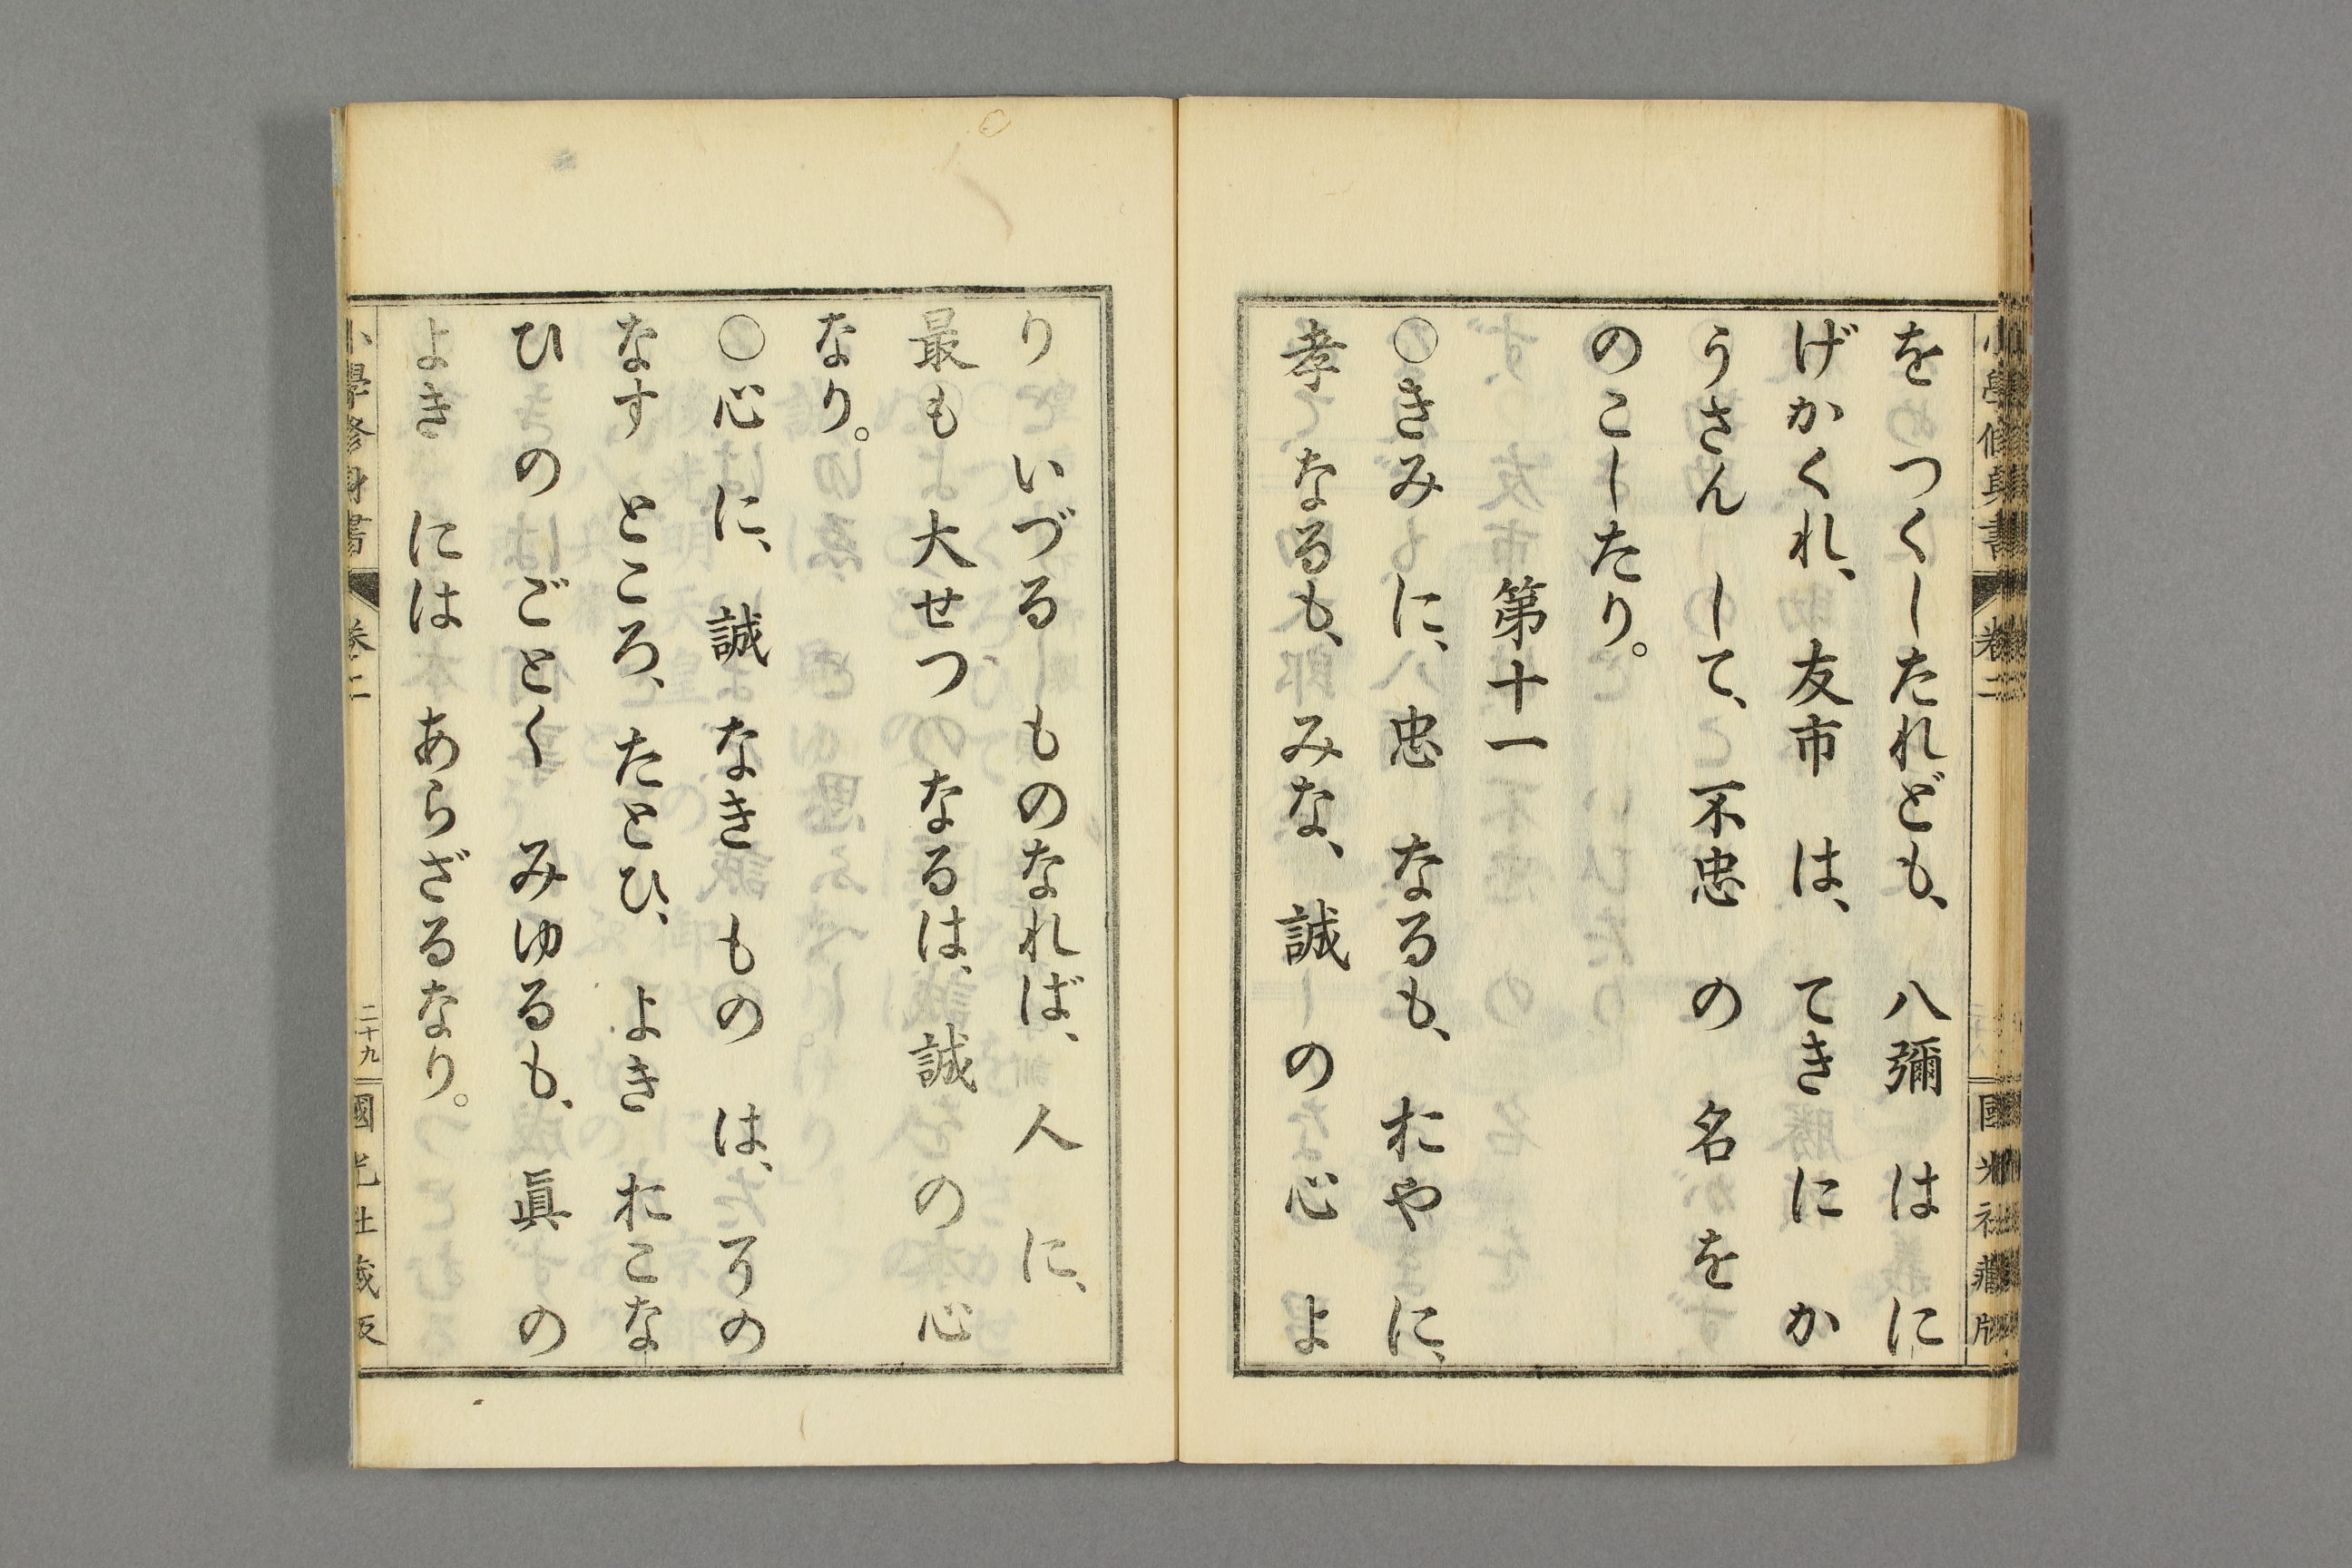 をつくしたれども、八彌 はに
げかくれ、友市 は、てきに か
うさん して、不忠 の 名 を
のこしたり。
第十一
○きみ に、忠 なるも、おや に、
孝 なるも、みな、誠 の 心 よ
り いづる ものなれば、人 に、
最も 大せつ なるは、誠 の 心
なり。
○心 に、誠 なき もの は、その
なす ところ、たとひ、よき おこな
ひ の ごとく みゆるも、眞 の
よき には あらざるなり。
小學修身書 卷二 二十九 國光社藏版